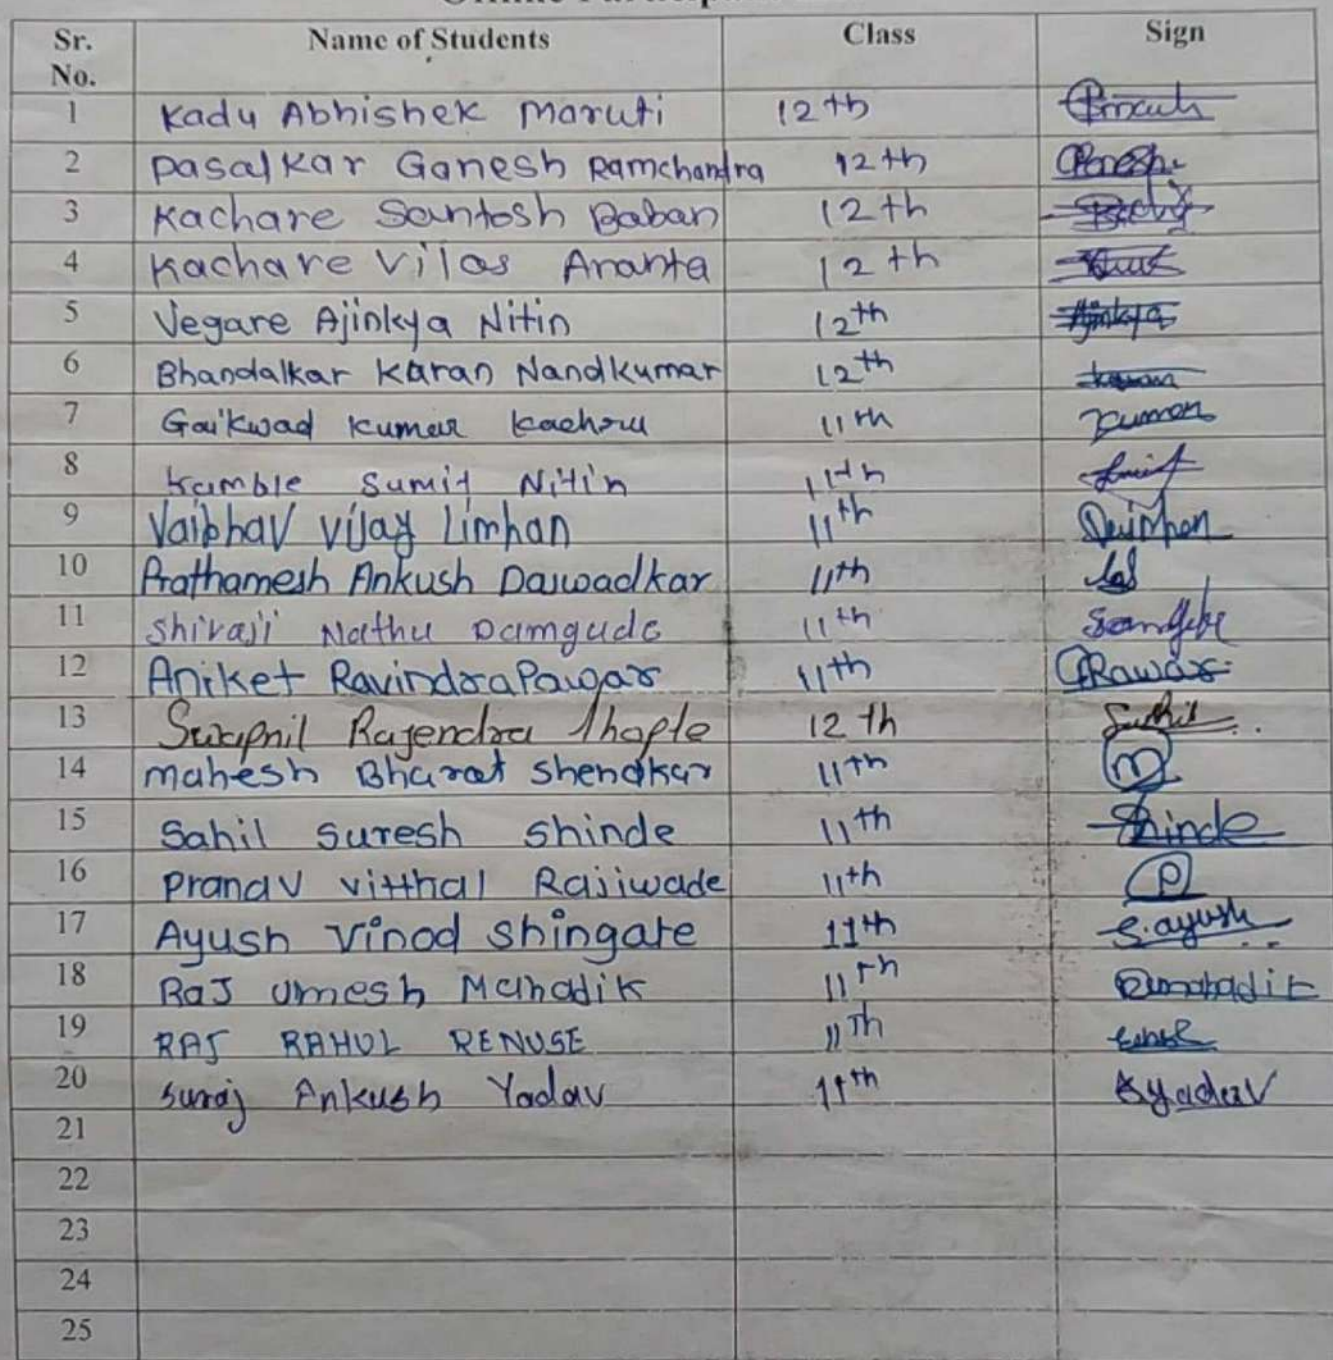 Sr. No. Name of Students Class Sign
1 Kadu Abhishek Maruti 12th
2 Pasalkar Ganesh Ramchandra 12th
3 Kachare Santosh Baban 12th
4 Kachare Vilas Ananta 12th
5 Vegare Ajinkya Nitin 12th Ajinkya
6 Bhandalkar Karan Nandkumar 12th
7 Gaikwad Kumar Kachru 11th
8 Kamble Sumit Nitin 11th
9 Vaibhav Vijay Limhan 11th
10 Prathamesh Ankush Dawadkar 11th
11 Shivaji Nathu Damgude 11th
12 Aniket Ravindra Pawar 11th
13 Swapnil Rajendra Thople 12th
14 Mahesh Bharat Shendkar 11th
15 Sahil Suresh Shinde 11th Shinde
16 Pranav Vitthal Rajiwade 11th P
17 Ayush Vinod Shingate 11th S.ayush
18 Raj Umesh Mahadik 11th
19 RAJ RAHUL RENUSE 11Th
20 Suraj Ankush Yadav 11th
21
22
23
24
25